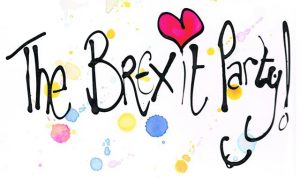 The BREXit Party!